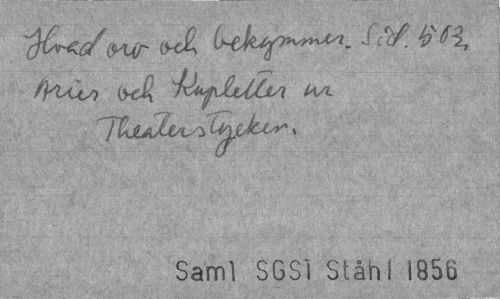 Hvad oro och bekymmer. Sid. 503.
Arier och Kupletter ur
Theaterstycken.
Saml SGS1 Ståhl 1856